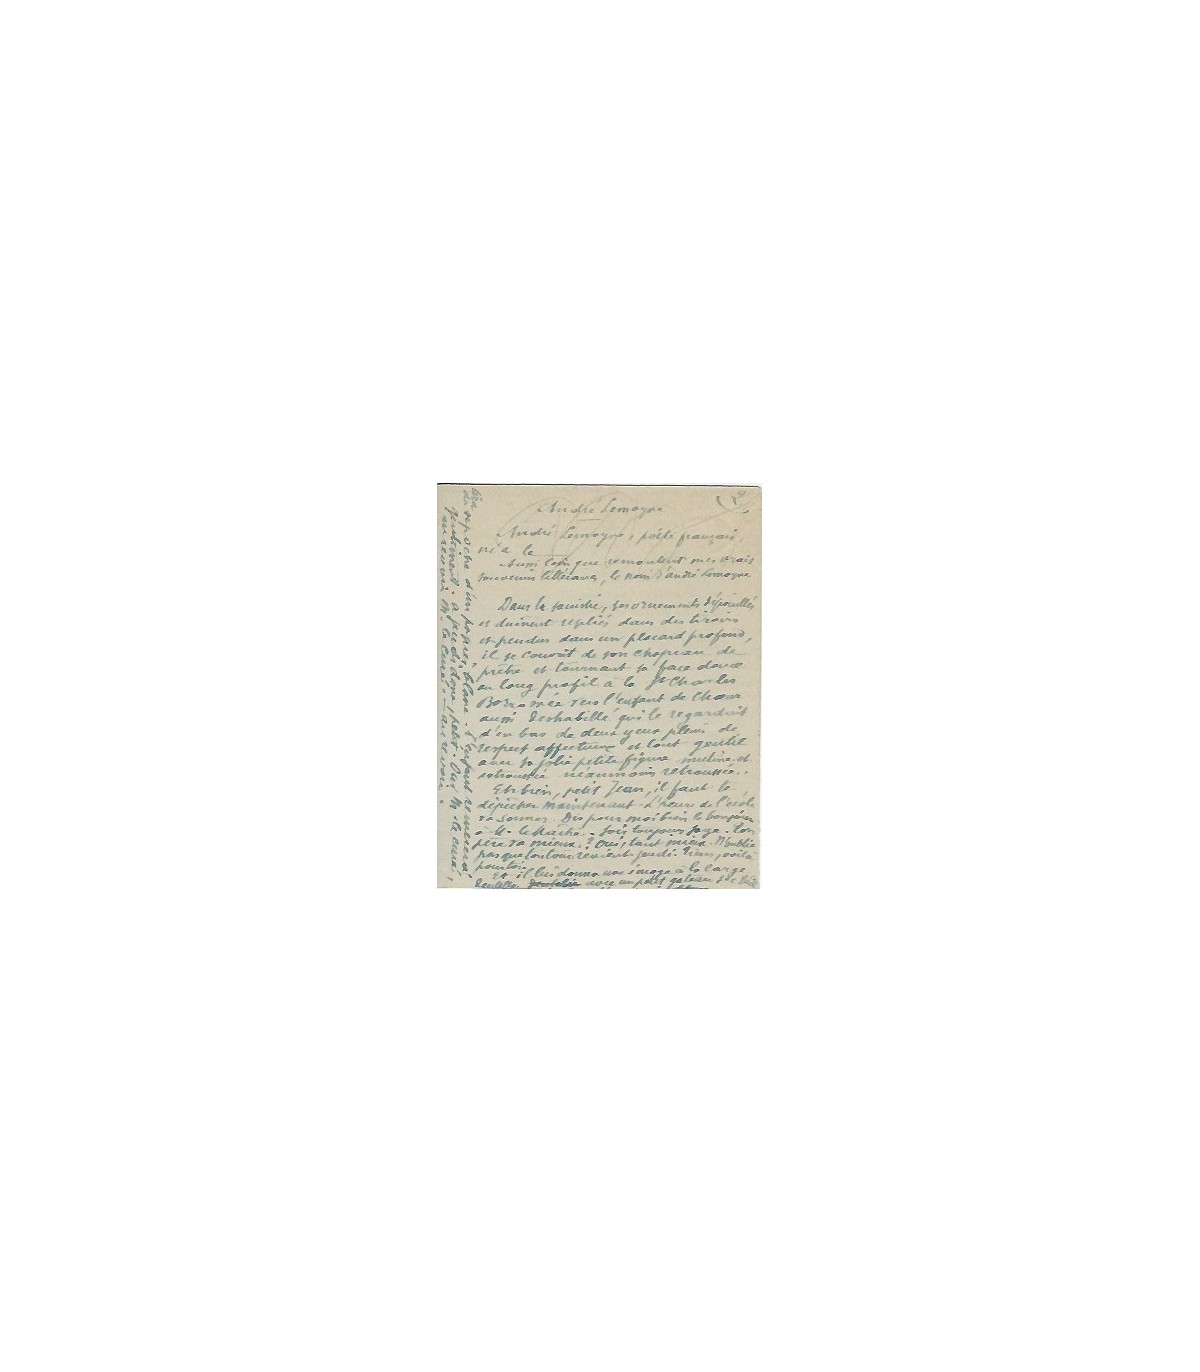 André Lemoyne
André Lemoyne, poète français,
né à le
Aussi loin que remontent mes vrais
souvenirs littéraires, le nom d'André Lemoyne
Dans la sacristie, ses ornements dépouillés
et dûment repliés dans des tiroirs
et pendus dans un placard profond,
il se couvrit de son chapeau de
prêtre et tournant sa face douce
au long profil à la St Charles
Borromée vers l'enfant de Chœur
aussi déshabillé qui le regardait
d'en bas de deux yeux pleins de
respect affectueux et tout gentil
avec sa jolie petite figure mutine et
néanmoins retroussée.
Eh bien, petit Jean, il faut te
dépêcher maintenant. L'heure de l'école
va sonner. Dis pour moi bien le bonjour
à M. le Maître. Sois toujours sage. Ton
père va mieux? Oui, tant mieux. N'oublie
pas que ton tour revient jeudi. Tiens, voilà
pour toi.
Et il lui donna une image à la large
dentelle avec un petit gateau
de sa poche d'un papier blanc. L'enfant remercia
gentiment. à jeudi donc, petit. Oui M. le curé,
au revoir M. le curé. — au revoir.